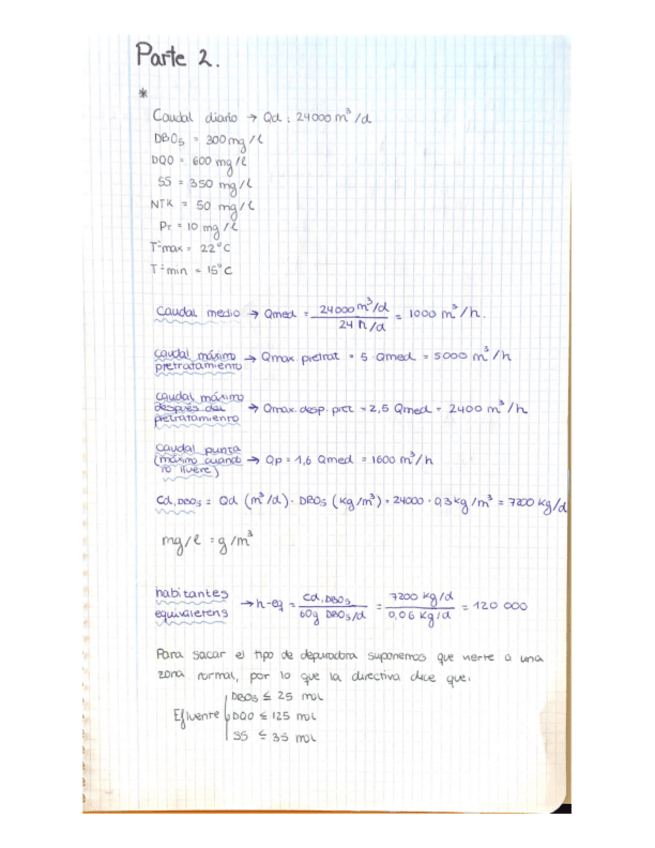 Parte 2.
*
Caudal diario → Qd : 24000 m³/d
DBO₅ = 300 mg/l
DQO = 600 mg/l
SS = 350 mg/l
NTK = 50 mg/l
PT = 10 mg/l
Tªmax = 22°C
Tªmin = 15°C
Caudal medio → Qmed = 24000 m³/d / 24 h/d = 1000 m³/h.
caudal máximo
pretratamiento → Qmax. pretrat = 5 · Qmed = 5000 m³/h
caudal máximo
después del → Qmax. desp. pret = 2,5 Qmed = 2400 m³/h
pretratamiento
caudal punta
(máximo cuando → Qp = 1,6 Qmed = 1600 m³/h
no llueve)
Cd,DBO₅ = Qd (m³/d) · DBO₅ (kg/m³) = 24000 · 0,3 kg/m³ = 7200 kg/d
mg/l = g/m³
habitantes
equivalentens → h-eq = Cd,DBO₅ / 60g DBO₅/d = 7200 kg/d / 0,06 kg/d = 120 000
Para sacar el tipo de depuradora suponemos que vierte a una
zona normal, por lo que la directiva dice que:
DBO₅ ≤ 25 mol
Efluente DQO ≤ 125 mol
SS ≤ 35 mol